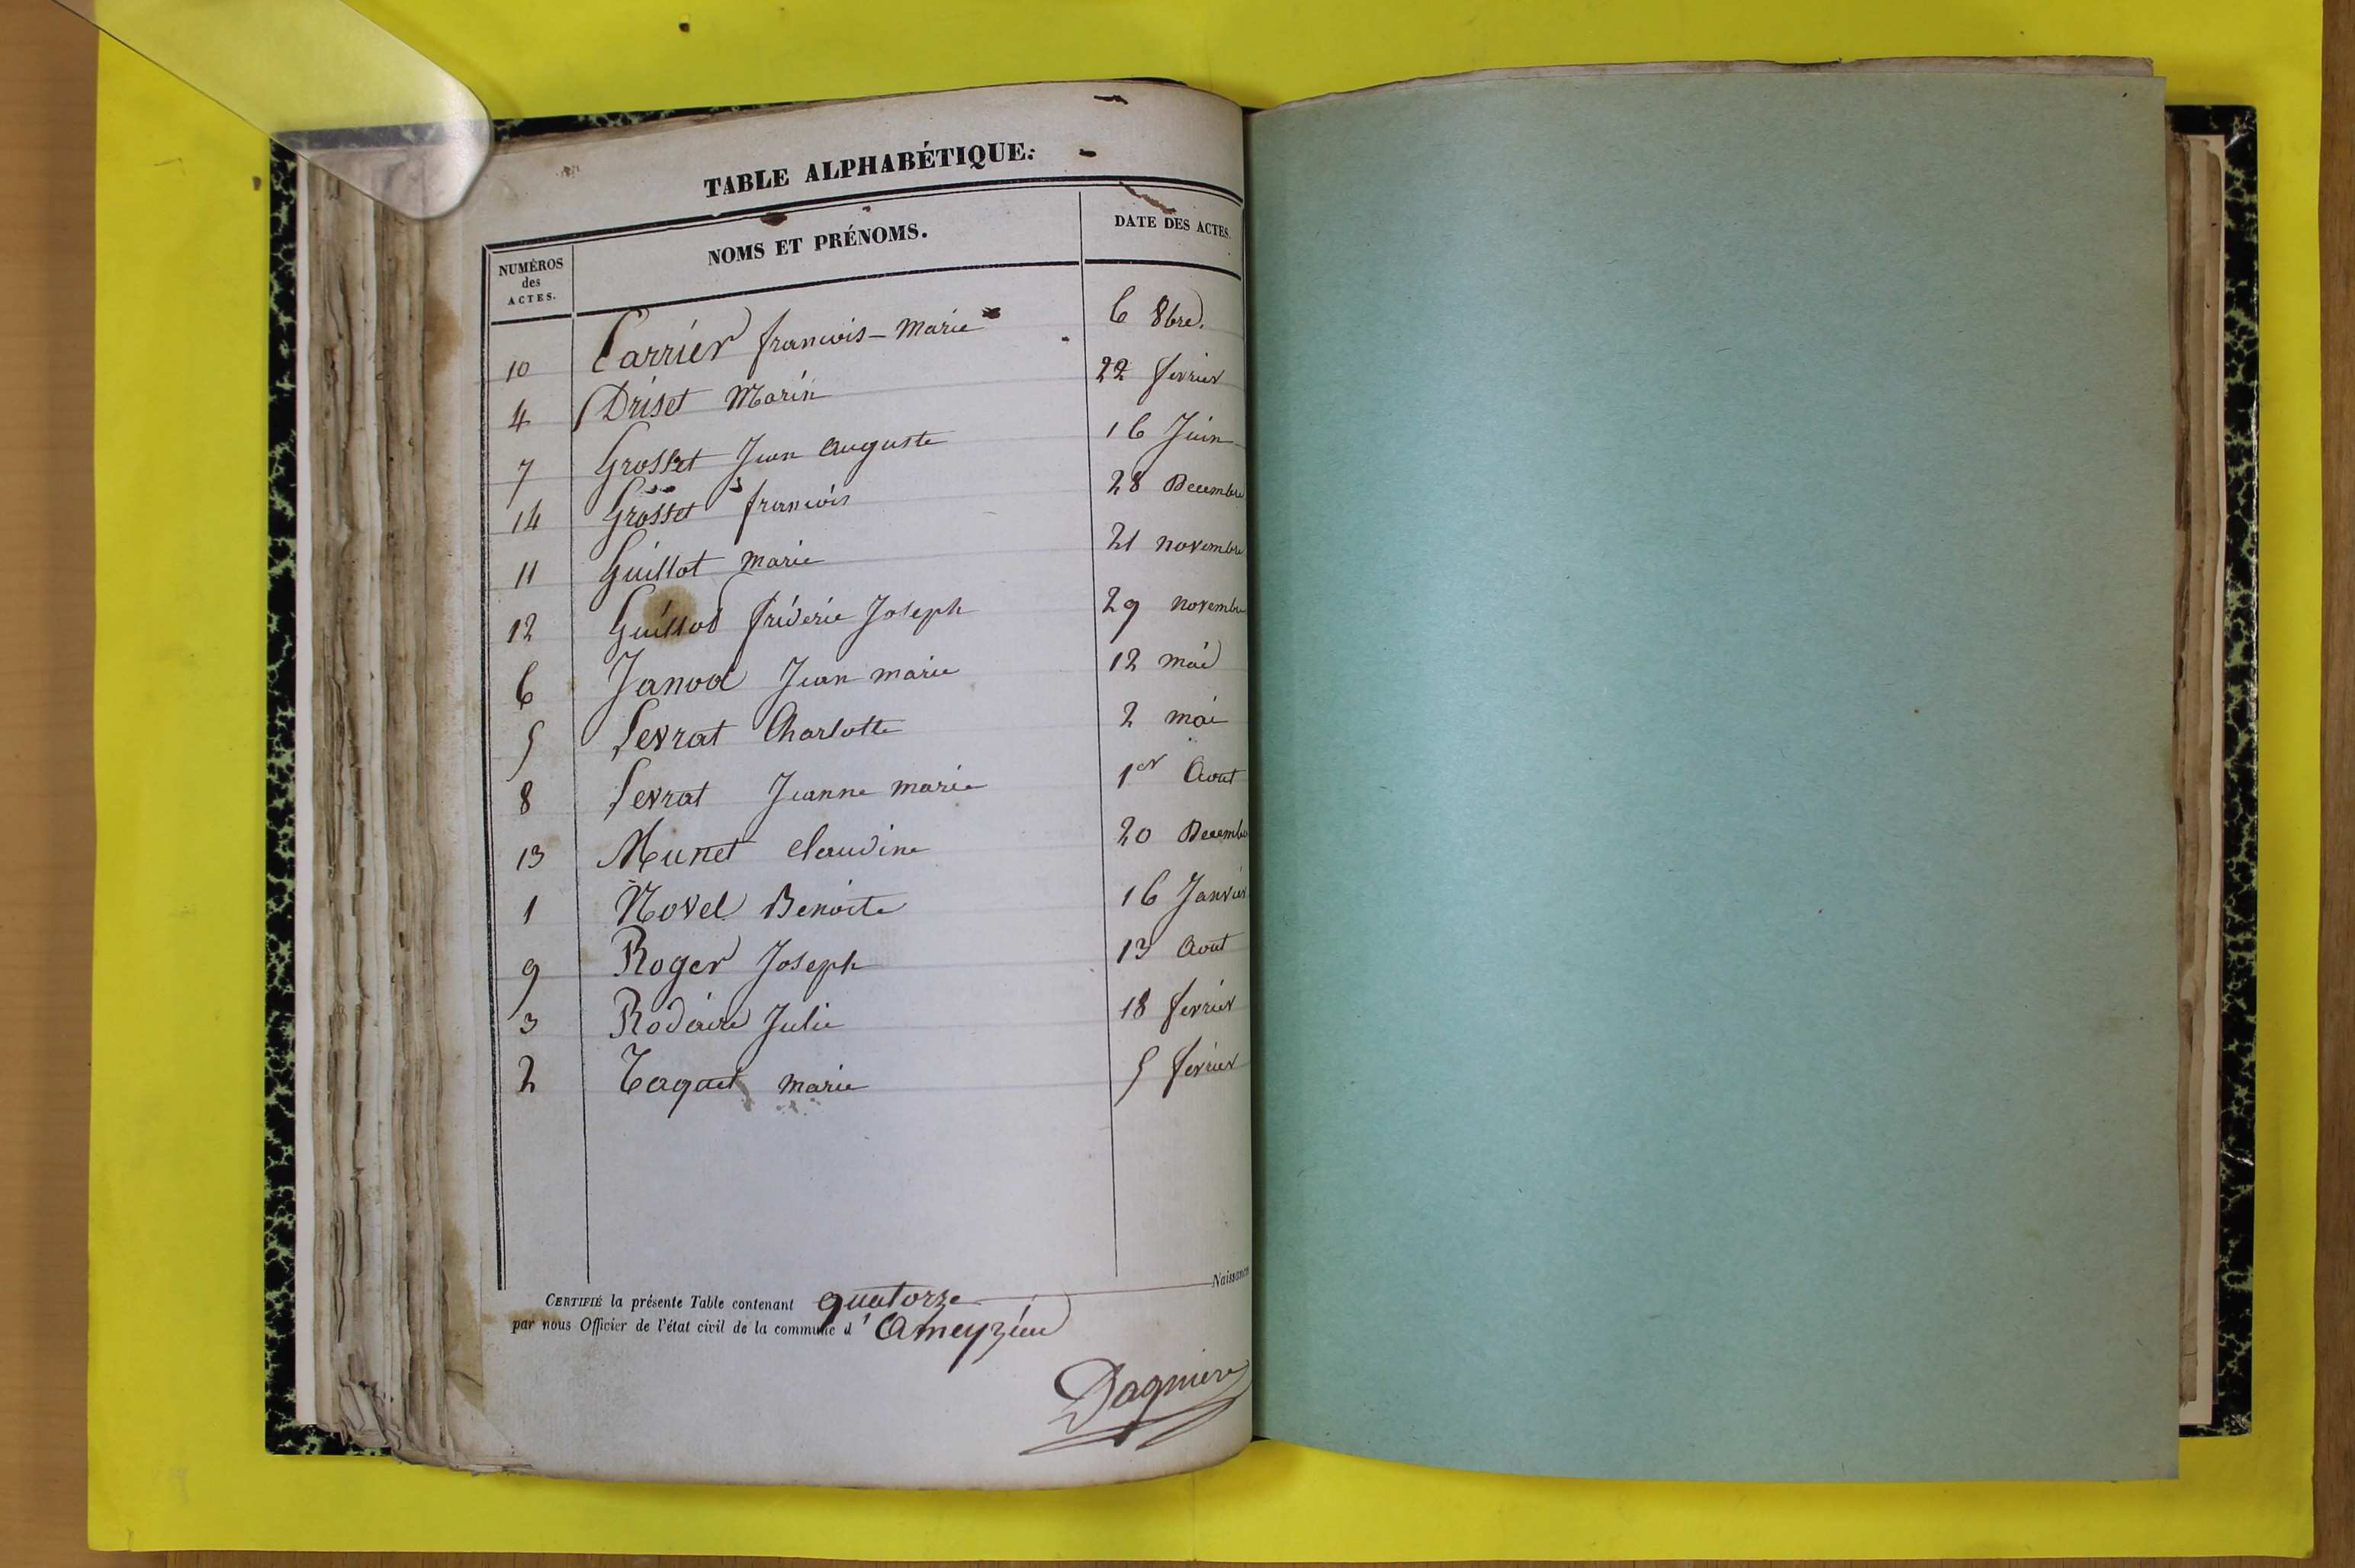 TABLE ALPHABÉTIQUE.
NUMÉROS des ACTES. NOMS ET PRÉNOMS. DATE DES ACTES.
10 Carrier francois-marie 6 8bre.
4 Driset Marin 22 fevrier
7 Grosset Jean Auguste 16 Juin
14 Grosset francois 28 Decembre
11 Guillot marie 21 novembre
12 Guillod fréderic Joseph 29 novembre
6 Janod Jean marie 12 mai
5 Levrat Charlotte 2 mai
8 Levrat Jeanne marie 1er Aout
13 Munet Claudine 20 Decembre
1 Novel Benoite 16 Janvier
9 Roger Joseph 13 Aout
3 Rodaire Julie 18 fevrier
2 Taquet marie 5 fevrier
CERTIFIÉ la présente Table contenant quatorze Naissances
par nous Officier de l'état civil de la commune d'Ameyzieu